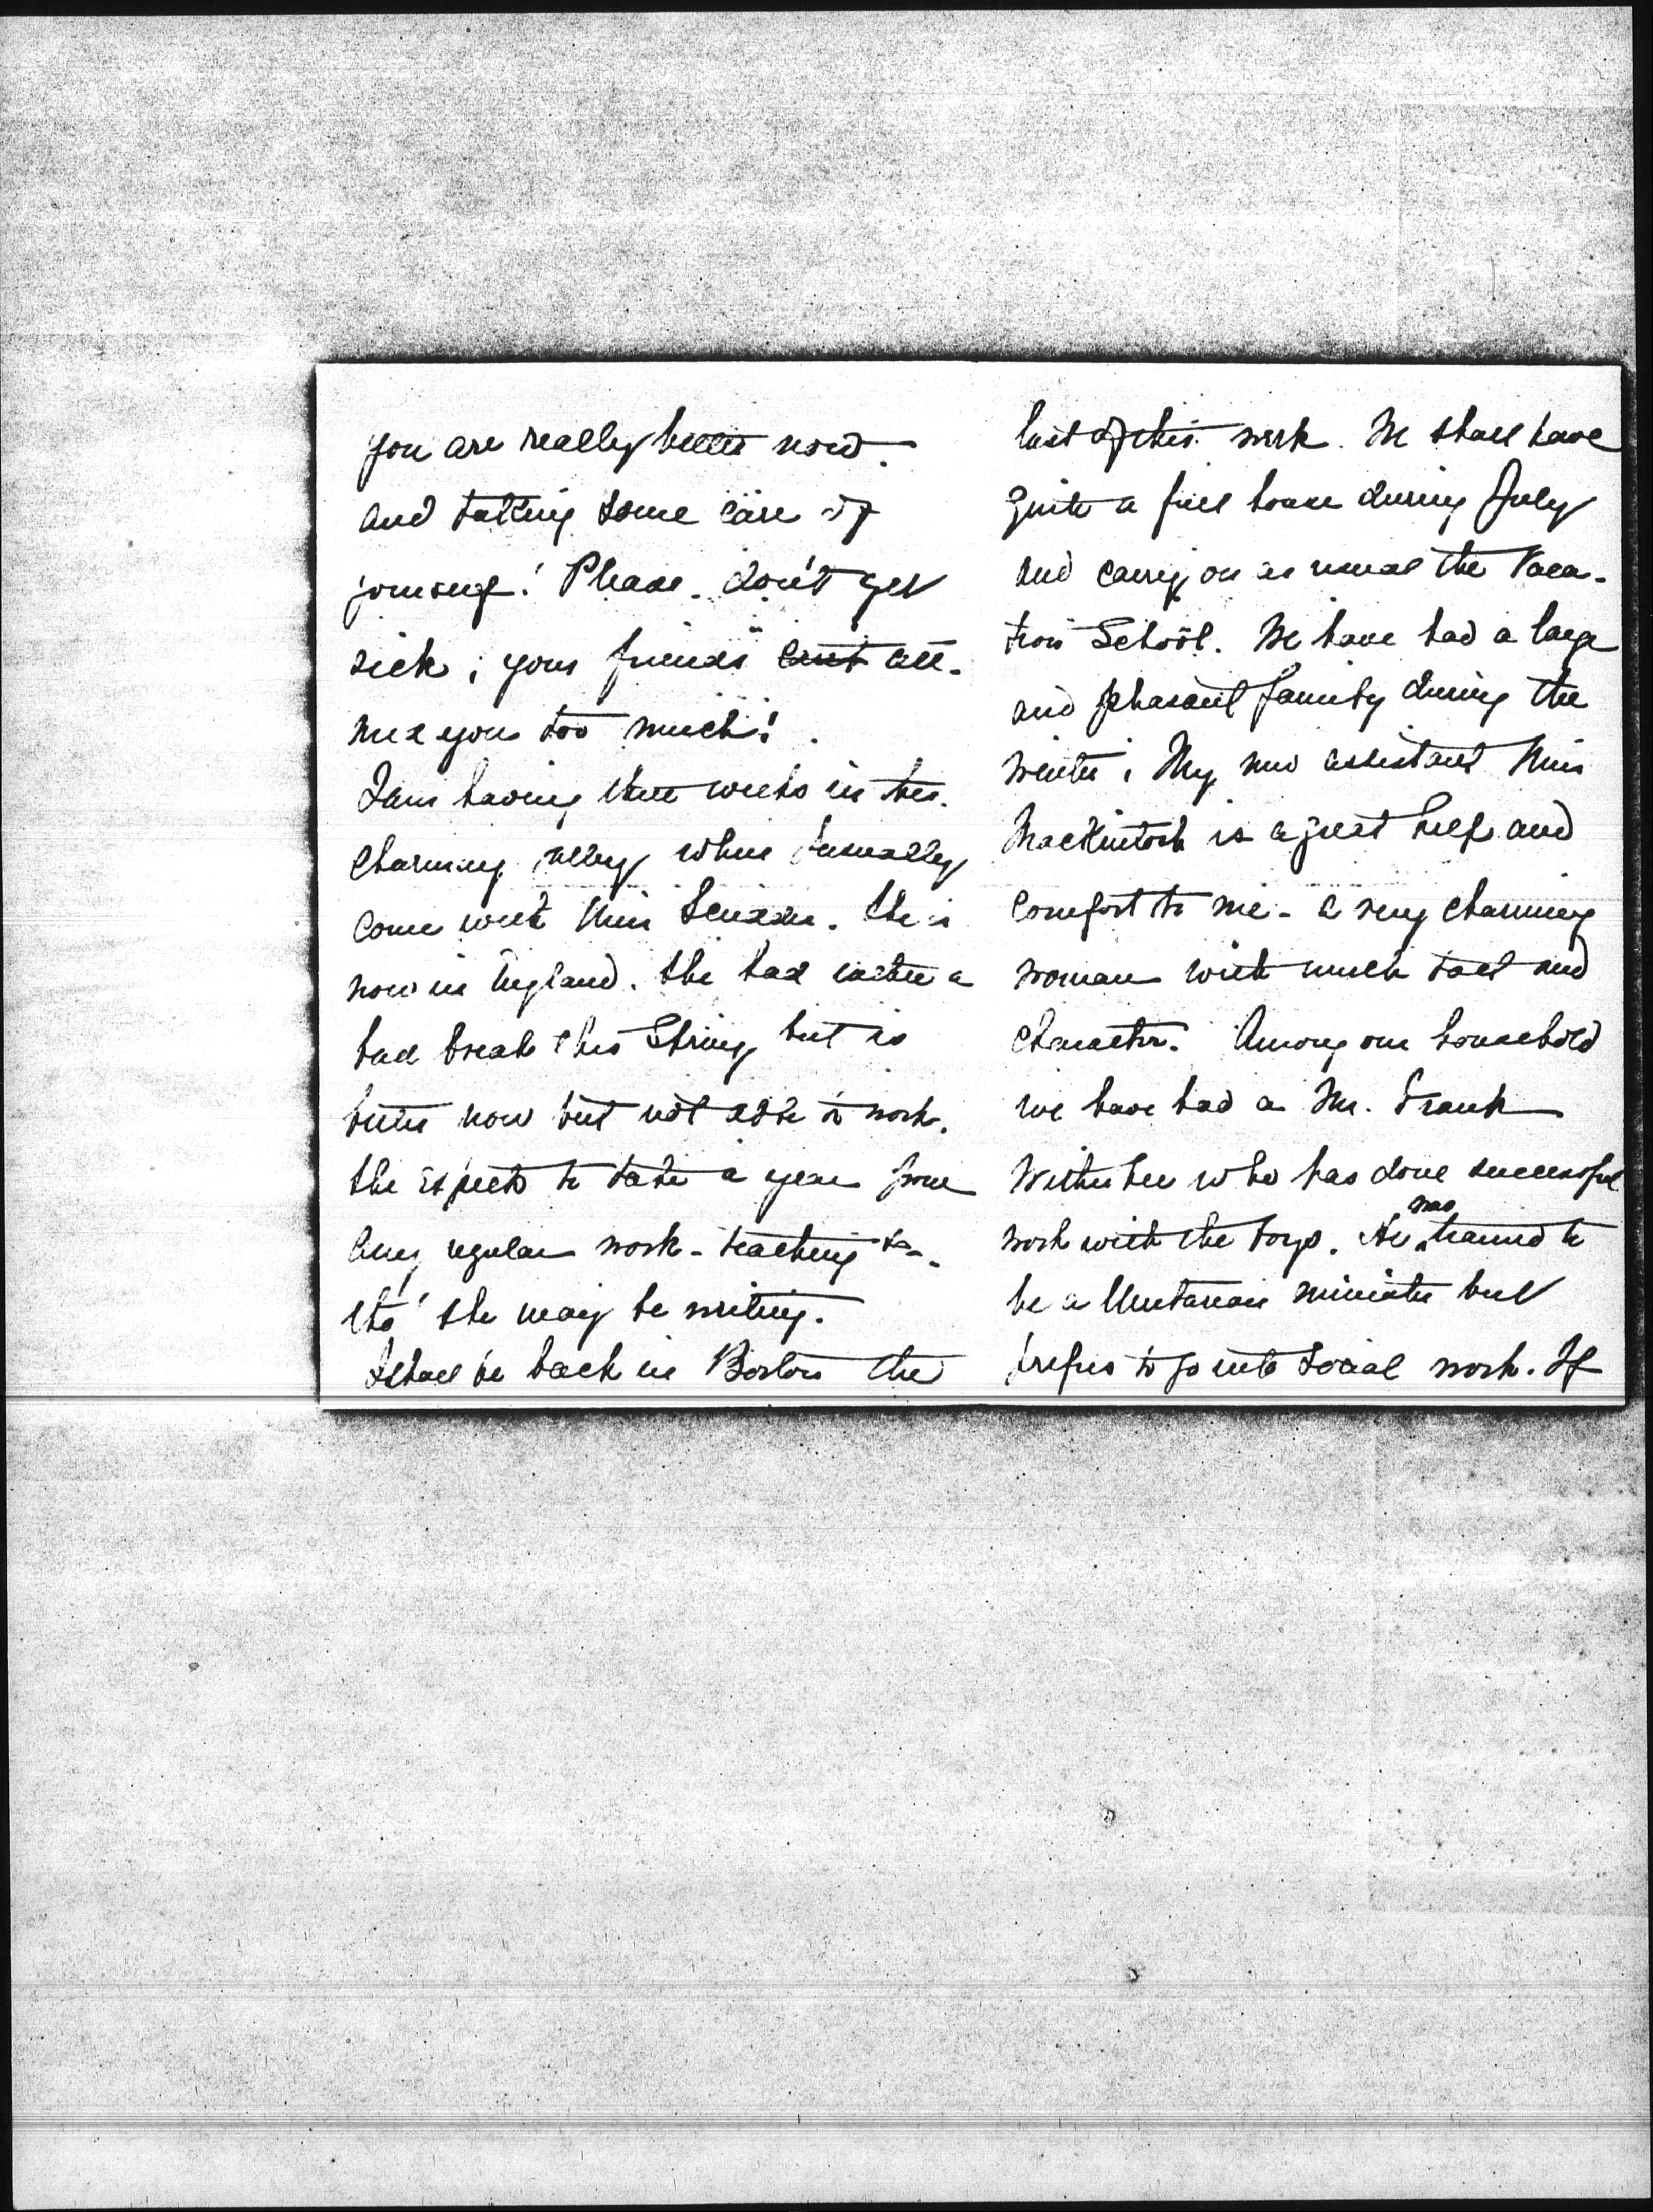 you are really better now.
and taking some care of
yourself! Please. don't get
sick; your friends can't all.
need you too much!
I am having three weeks in this.
charming valley where I usually
come with Miss Scudder. She is
now in England. She had rather a
bad break this Spring but is
better now but not able to work.
She expects to take a year from
any regular work - teaching &c -
tho' she may be writing.
I shall be back in Boston the
last of this week. We shall have
quite a full house during July
and carry on as usual the Vaca-
tion School. We have had a large
and pleasant family during the
winter. My new assistant Miss
MacKintosh is a great help and
comfort to me - a very charming
woman with much tact and
character. Among our household
we have had a Mr. Frank
who has done successful
work with the boys. He was trained to
be a Unitarian minister but
prefers to go into Social work. If